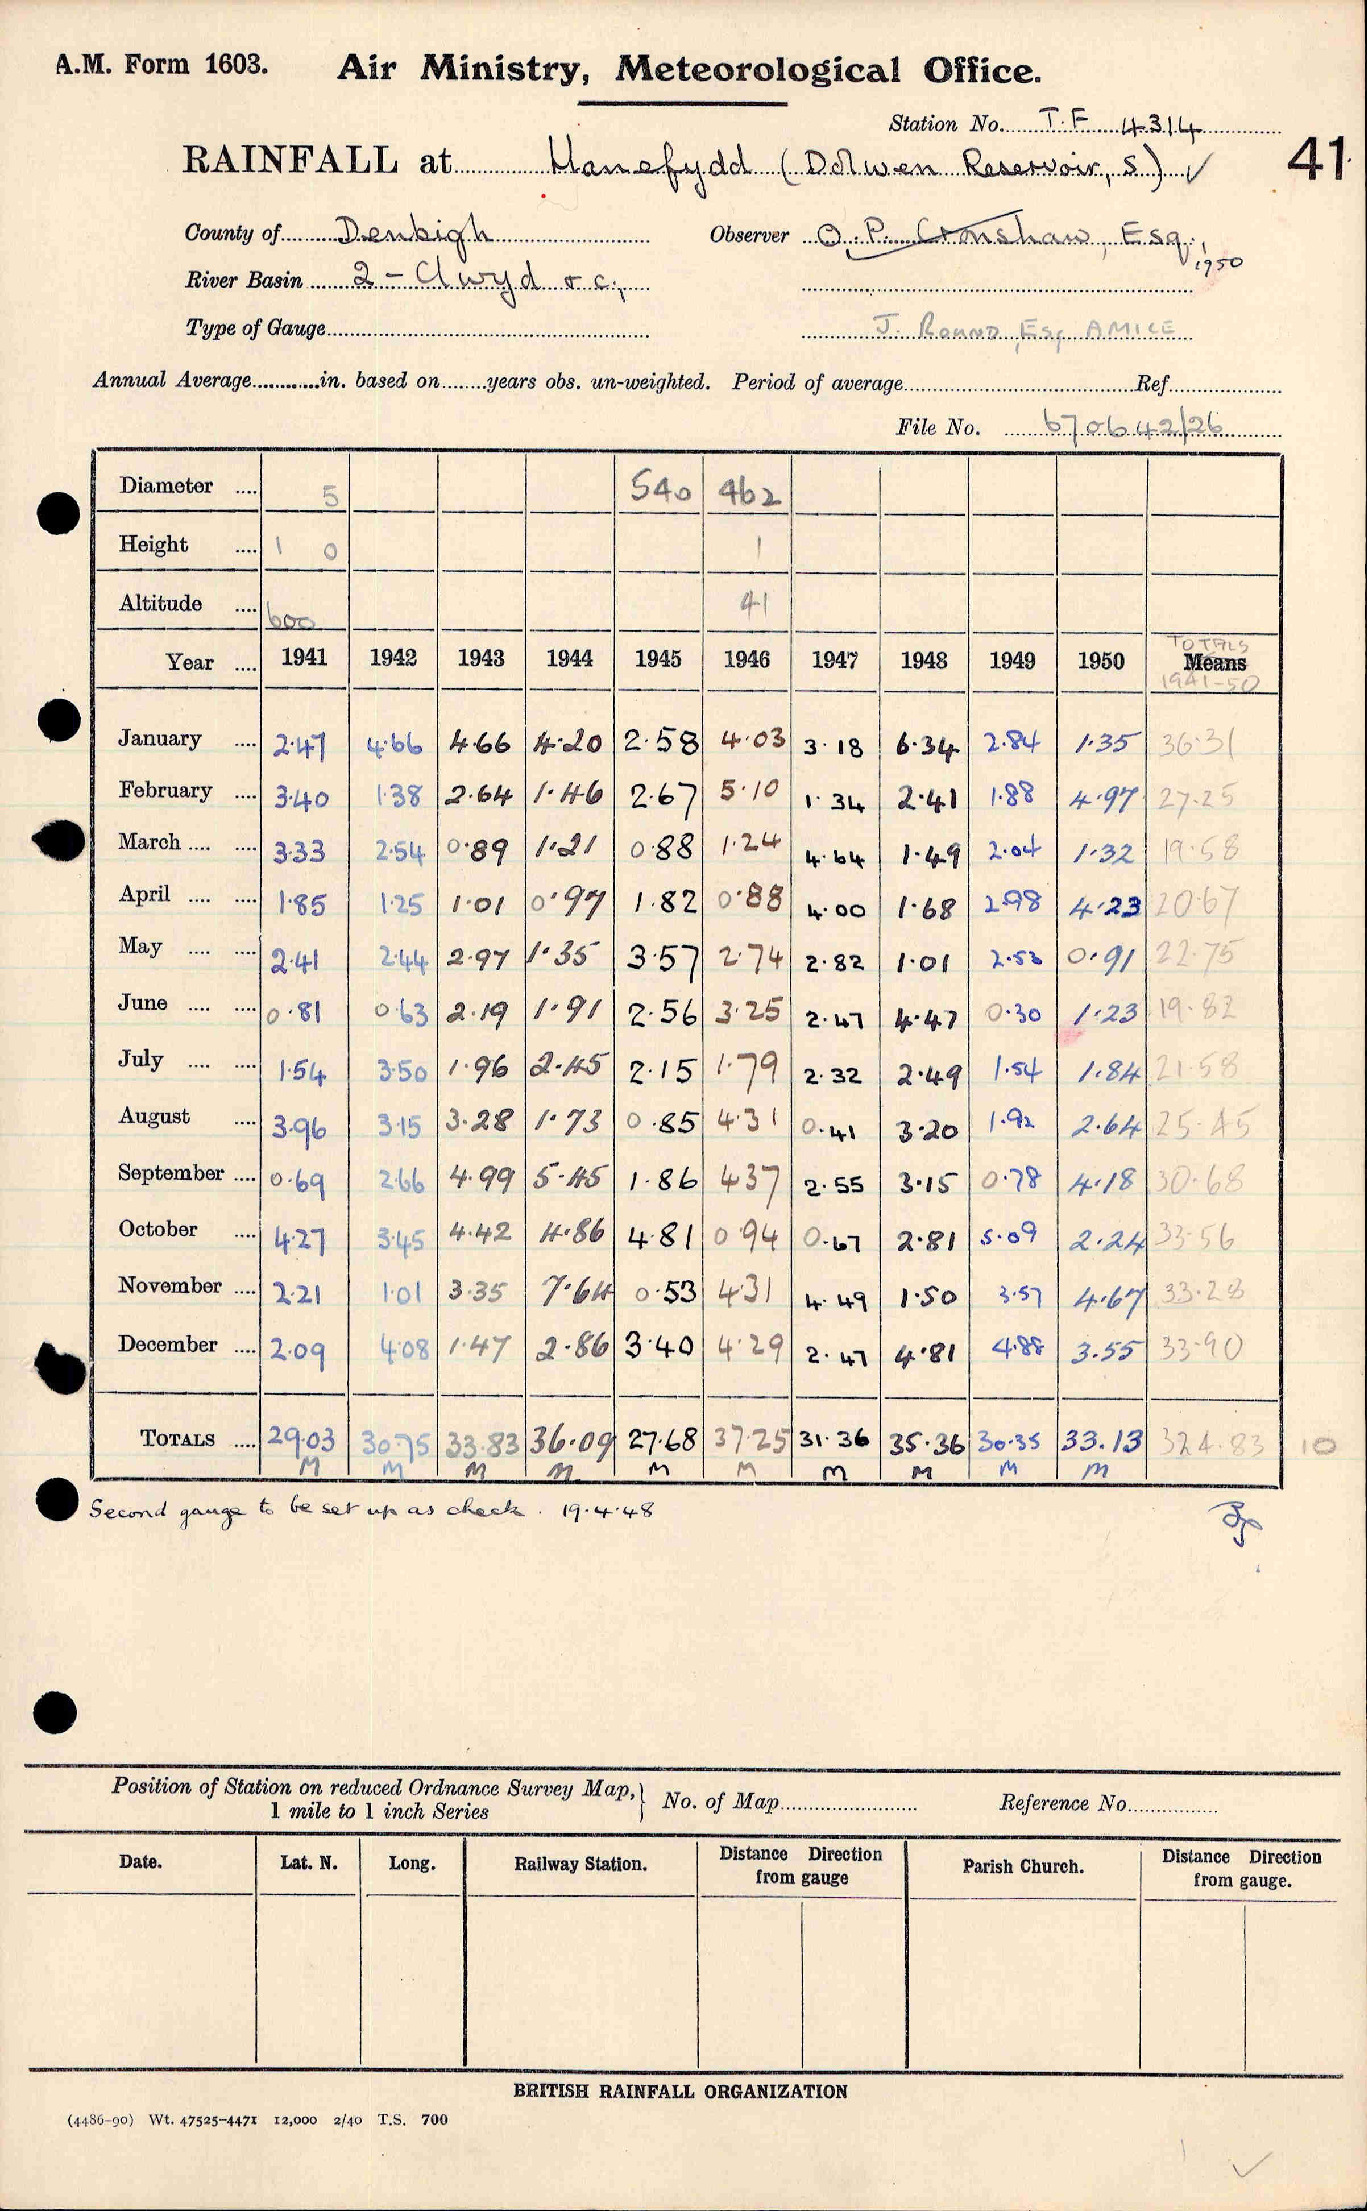 A.M. Form 1603. Air Ministry, Meteorological Office.
Station No. T.F 4314
RAINFALL at Llanefydd (Dolwen Reservoir, S) ✓ 41
County of Denbigh Observer O. P. Cronshaw, Esq., 1950
River Basin 2 - Clwyd &c.,
Type of Gauge J. Round, Esq AMICE
Annual Average in. based on years obs. un-weighted. Period of average Ref.
File No. 670642/26
Diameter 5 540 462
Height 1 0 1
Altitude 600 41
Year 1941 1942 1943 1944 1945 1946 1947 1948 1949 1950 Means TOTALS 1941-50
January 2.47 4.66 4.66 4.20 2.58 4.03 3.18 6.34 2.84 1.35 36.31
February 3.40 1.38 2.64 1.46 2.67 5.10 1.34 2.41 1.88 4.97 27.25
March 3.33 2.54 0.89 1.21 0.88 1.24 4.64 1.49 2.04 1.32 19.58
April 1.85 1.25 1.01 0.97 1.82 0.88 4.00 1.68 2.98 4.23 20.67
May 2.41 2.44 2.97 1.35 3.57 2.74 2.82 1.01 2.53 0.91 22.75
June 0.81 0.63 2.19 1.91 2.56 3.25 2.47 4.47 0.30 1.23 19.82
July 1.54 3.50 1.96 2.45 2.15 1.79 2.32 2.49 1.54 1.84 21.58
August 3.96 3.15 3.28 1.73 0.85 4.31 0.41 3.20 1.92 2.64 25.45
September 0.69 2.66 4.99 5.45 1.86 4.37 2.55 3.15 0.78 4.18 30.68
October 4.27 3.45 4.42 4.86 4.81 0.94 0.67 2.81 5.09 2.24 33.56
November 2.21 1.01 3.35 7.64 0.53 4.31 4.49 1.50 3.57 4.67 33.28
December 2.09 4.08 1.47 2.86 3.40 4.29 2.47 4.81 4.88 3.55 33.90
TOTALS 29.03 30.75 33.83 36.09 27.68 37.25 31.36 35.36 30.35 33.13 324.83 10
M M M M M M M M M M
Second gauge to be set up as check. 19.4.48
Position of Station on reduced Ordnance Survey Map, 1 mile to 1 inch Series } No. of Map Reference No.
Date. Lat. N. Long. Railway Station. Distance Direction from gauge Parish Church. Distance Direction from gauge.
BRITISH RAINFALL ORGANIZATION
(4486-90) Wt. 47525-4471 12,000 2/40 T.S. 700